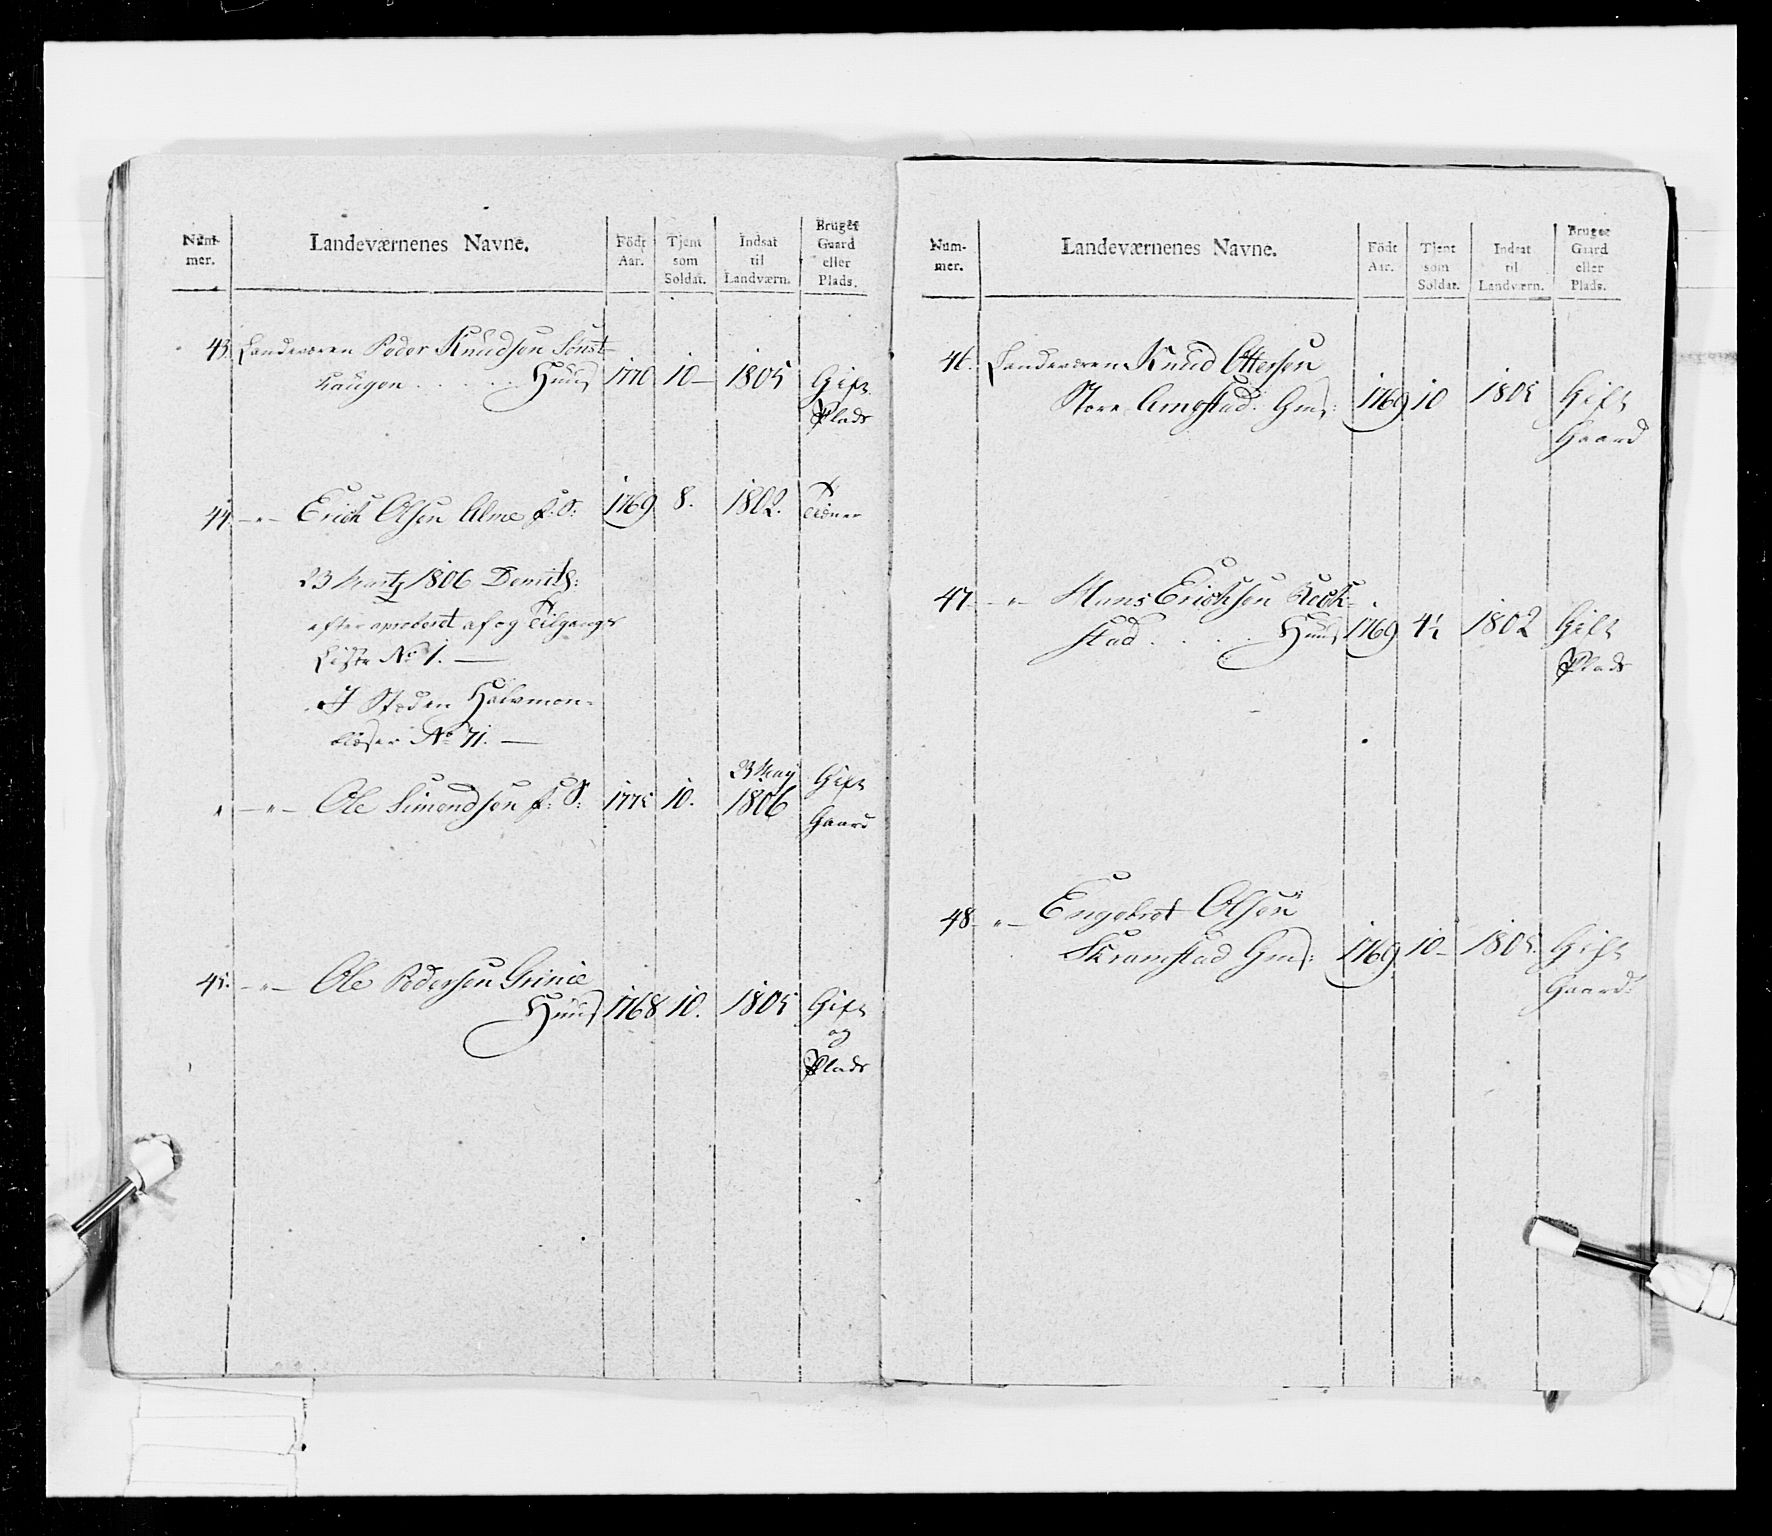 Num-
mer.
Landeværnenes Navne.
Födt
Aar.
Tjent
som
Soldat.
Indsat
til
Landværn.
Bruger
Gaard
eller
Plads.
43. Landeværen Peder Knudsen Sönst-
haugen . . . . . Huus 1770 10— 1805 Gift
Plads
44. —"— Erich Olsen Alme f. S: 1769 8. 1802. Tiener
23 Martz 1806 Demits:
efter aproberet af og Tilgangs
Liste No 1. —
I Steden Halvmon-
blöser No 71. —
" —"— Ole Simendsen f. S: 1775 10. 23 May 1806 Gift
Gaard
45. —"— Ole Pedersen Grinie
Huus 1768 10. 1805 Gift
og
Plads
Num-
mer.
Landeværnenes Navne.
Födt
Aar.
Tjent
som
Soldat.
Indsat
til
Landværn.
Bruger
Gaard
eller
Plads.
46. Landeværen Knud Ottersen
Store Gms: 1769 10 1805 Gift
Gaard
47. —"— Hans Erichsen
stad . . . . Huus 1769 4½ 1802 Gift
Plads
48. "— Engebret Olsen
Skramstad Gms: 1769 10— 1805. Gift
Gaard.